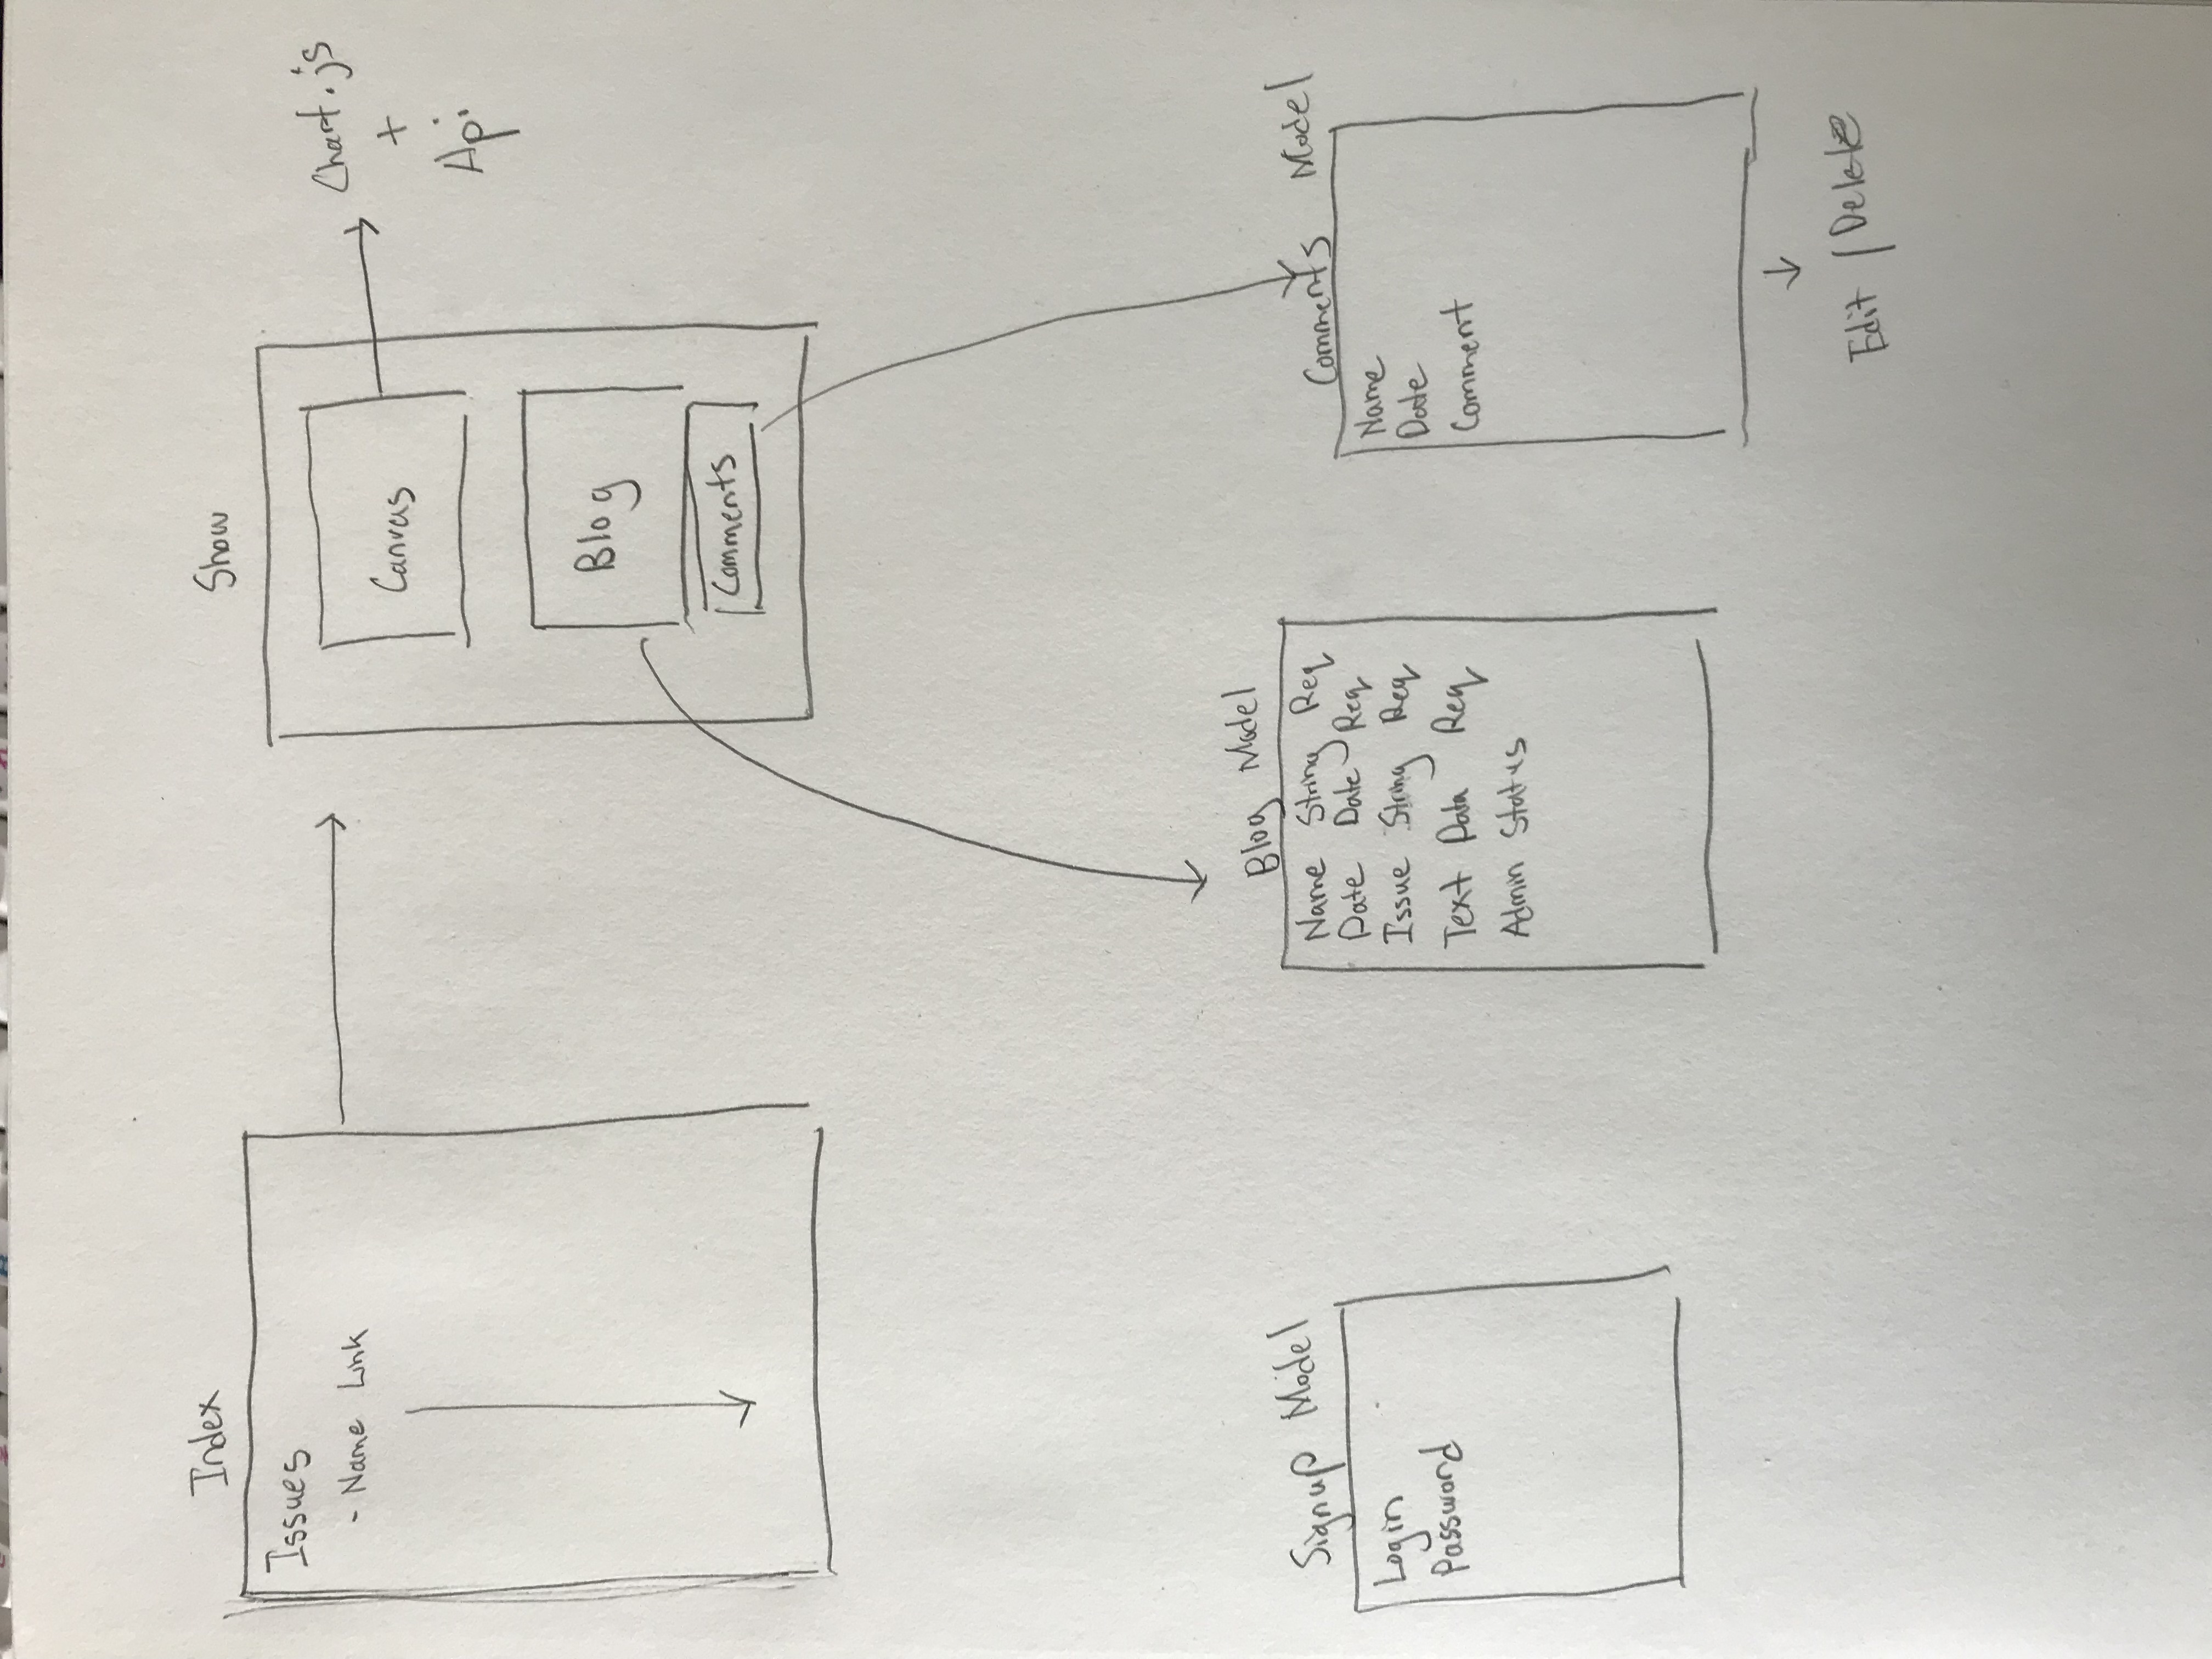 Index
Issues
- Name Link
Show
Canvas
Chart.js
+
Api
Blog
Comments
Signup Model
Login
Password
Blog Model
Name String Req
Date Date Req
Issue String Req
Text Data Req
Admin Status
Comments Model
Name
Date
Comment
Edit / Delete